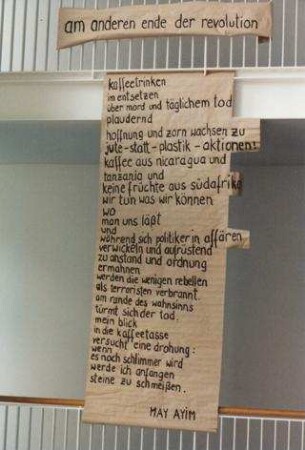 am anderen ende der revolution
kaffeetrinken
im entsetzen
über mord und täglichem tod
plaudernd
hoffnung und zorn wachsen zu
jute-statt-plastik-aktionen:
kaffee aus nicaragua und
tanzania und
keine früchte aus südafrika
wir tun was wir können
wo
man uns läßt
und
während sich politiker in affären
verwickeln und aufrüstend
zu anstand und ordnung
ermahnen
werden die wenigen rebellen
als terroristen verbrannt.
am rande des wahnsinns
türmt sich der tod.
mein blick
in die kaffeetasse
versucht eine drohung:
wenn
es noch schlimmer wird
werde ich anfangen
steine zu schmeißen.
MAY AYIM